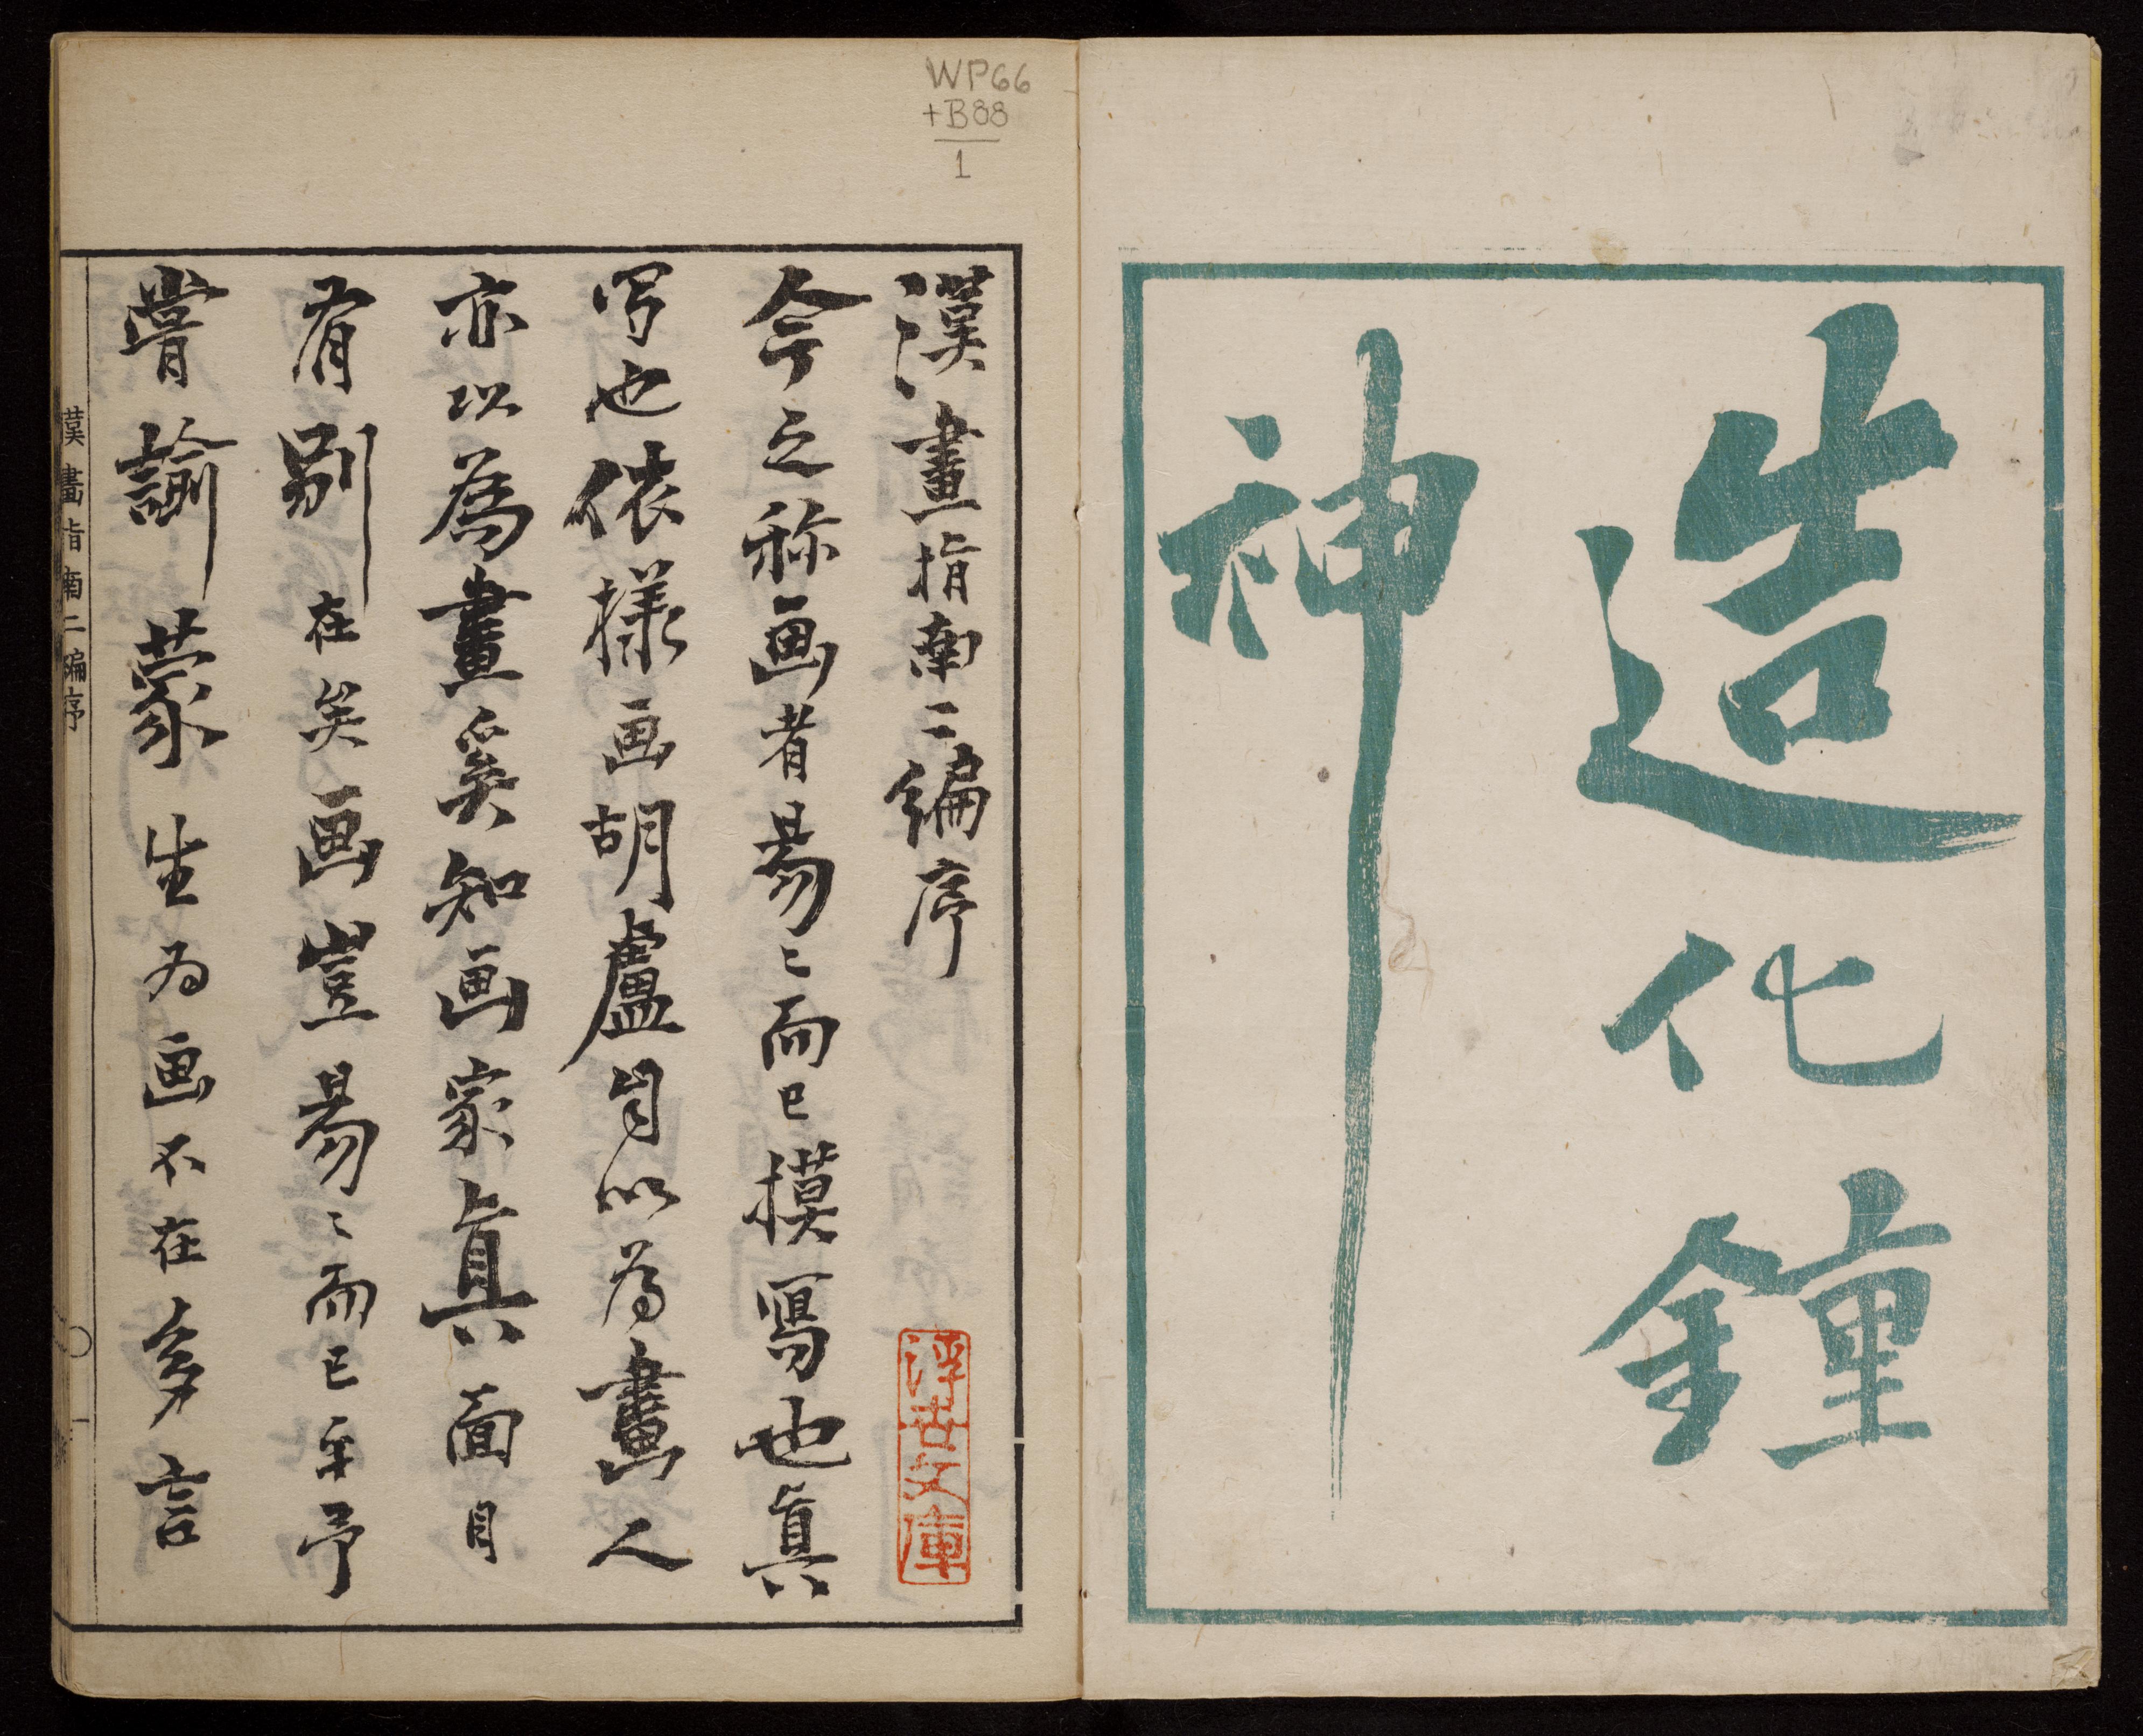 造化鐘
神
WP66
+B88
1
漢畫指南二編序
今之称画者易〻而已摸寫也真
写也依様画胡盧自以為畫人
亦以為畫奚知画家真面目
有別在矣画豈易〻而已乎予
嘗諭蒙生为画不在多言
漢畫指南二編序
一
浮世文庫